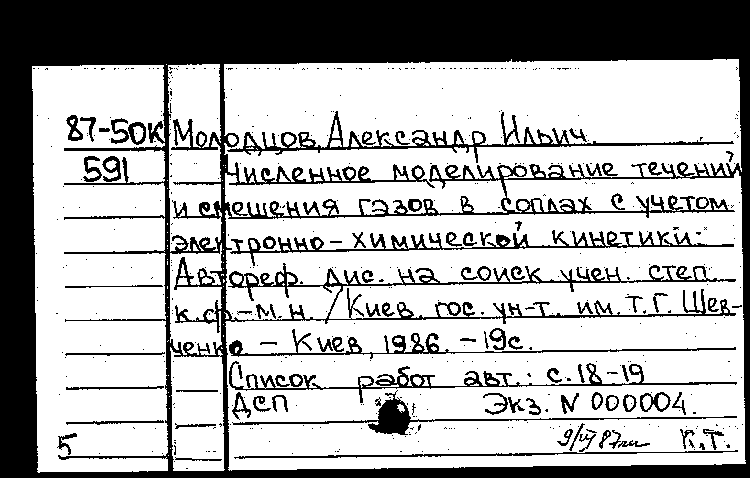 87-50К Молодцов, Александр Ильич.
591 Численное моделирование течений
и смешения газов в соплах с учетом
электронно-химической кинетики:
Автореф. дис. на соиск. учен. степ.
к.ф.-м.н. /Киев. гос. ун-т. им. Т.Г. Шев-
ченко – Киев, 1986. – 19с.
Список работ авт.: с.18-19
ДСП Экз. N 000004.
5 К.Т.